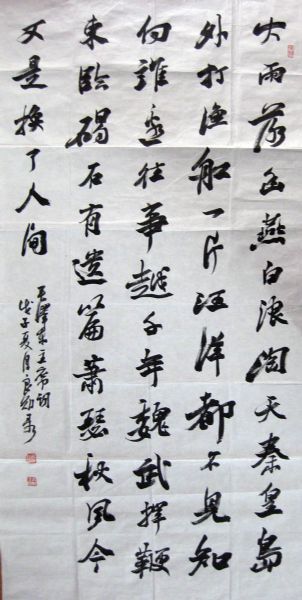 大雨落幽燕白浪滔天秦皇島
外打漁船一片汪洋都不見知
向誰邊往事越千年魏武揮鞭
東臨碣石有遺篇蕭瑟秋風今
又是換了人间
毛澤東主席词
戊子夏月